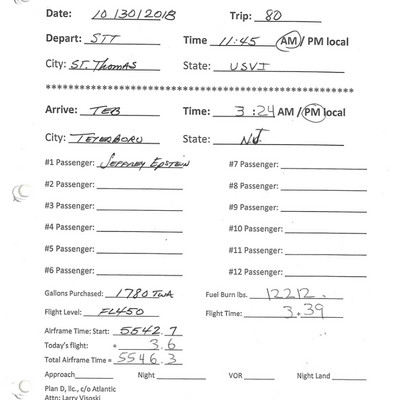 Date: 10/30/2018 Trip: 80
Depart: STT Time 11:45 AM / PM local
City: ST. Thomas State: USVI
************************************************
Arrive: TEB Time: 3:24 AM / PM local
City: TETERBORO State: NJ
#1 Passenger: JEFFREY EPSTEIN #7 Passenger:
#2 Passenger: #8 Passenger:
#3 Passenger: #9 Passenger:
#4 Passenger: #10 Passenger:
#5 Passenger: #11 Passenger:
#6 Passenger: #12 Passenger:
Gallons Purchased: 1780 TWA Fuel Burn lbs. 12212.
Flight Level: FL450 Flight Time: 3.39
Airframe Time: Start: 5542.7
Today's flight: + 3.6
Total Airframe Time = 5546.3
Approach Night VOR Night Land
Plan D, llc, c/o Atlantic
Attn: Larry Visoski